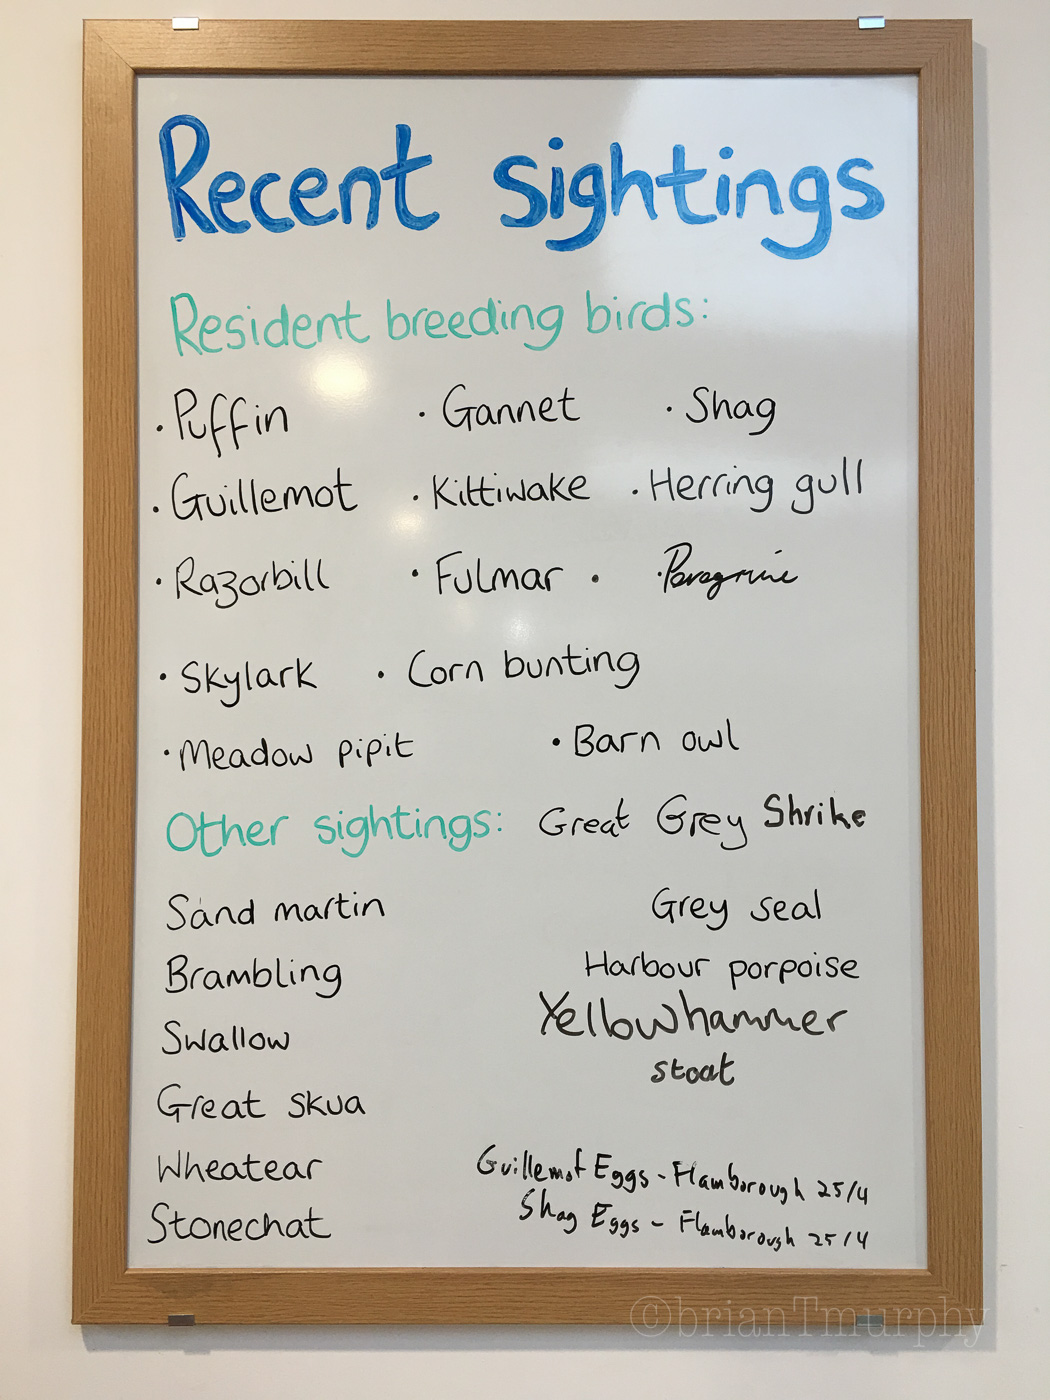 Recent sightings
Resident breeding birds:
· Puffin · Gannet · Shag
· Guillemot · Kittiwake · Herring gull
· Razorbill · Fulmar · · Peregrine
· Skylark · Corn bunting
· Meadow pipit · Barn owl
Other sightings: Great Grey Shrike
Sand martin Grey seal
Brambling Harbour porpoise
Swallow Yellowhammer
stoat
Great skua
Wheatear Guillemot Eggs - Flamborough 25/4
Stonechat Shag Eggs - Flamborough 25/4
©brianTmurphy